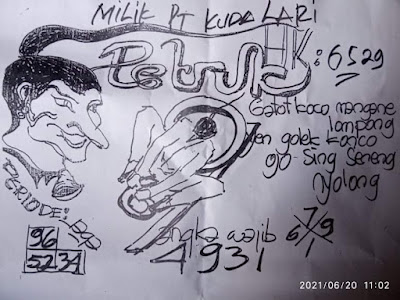 MILIK PT KUDA LARI
Petruk HK : 6529
Gatot koco mangane
lampong
yen golek konco
ojo Sing Seneng
Nyolong
PERIODE:
96
5234
angka wajib
4931
7
6 9
1
2021/06/20 11:02